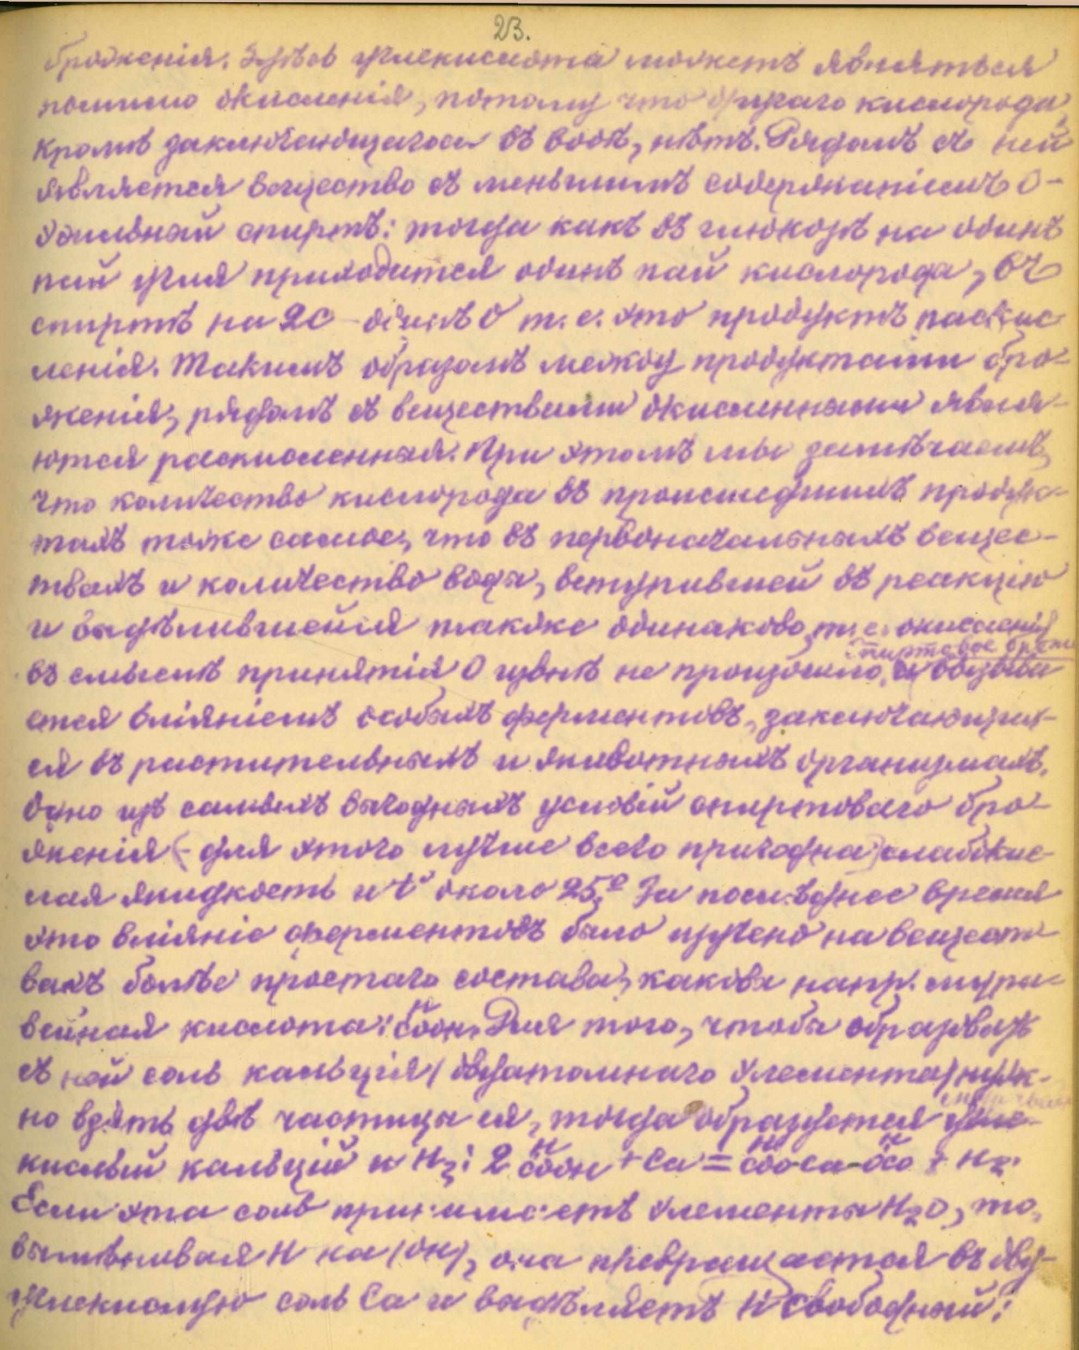 23.
броженія. Здѣсь углекислота можетъ являться
помимо окисленія, потому что другаго кислорода,
кромѣ заключающагося въ водѣ, нѣтъ. Рядомъ съ ней
является вещество съ меньшимъ содержаніемъ О-
этильный спиртъ: тогда какъ въ глюкозѣ на одинъ
пай угля приходится одинъ пай кислорода, въ
спиртѣ на 2С одинъ О т. е. это продуктъ раскис
ленія. Такимъ образомъ между продуктами бро-
женія, рядомъ съ веществами окисленными явля-
ются раскисленныя. При этомъ мы замѣчаемъ,
что количество кислорода въ происшедшихъ продук-
тахъ тоже самое, что въ первоначальныхъ вещес-
твахъ и количество воды, вступившей въ реакцію
и выдѣлившейся также одинаково, т. е. окисленія
спиртовое броже
въ смыслѣ принятія О извнѣ не произошло, вызыва
ется вліяніемъ особыхъ ферментовъ, заключающих-
ся въ растительныхъ и животныхъ организмахъ.
Одно изъ самыхъ выгодныхъ условій спиртоваго бро-
женія (- для этого лучше всего пригодна) слабокис-
лая жидкость и t° около 25°. За послѣднее время
это вліяніе ферментовъ было изучено на вещест
вахъ болѣе простаго состава, какова напр. мура-
вейная кислота: СООН. Для того, чтобы образовать
Н
съ ней соль кальція (двуатомнаго элемента) нуж-
но взять двѣ частицы ея, тогда образуется угле-
кислый кальцій и H₂: 2 COOH + Ca = COO-Ca-OCO + H₂.
Н Н Н
Если эта соль принимаетъ элементы H₂O, то,
вымѣнивая Н на (ОН), она превращается въ дву-
углекислую соль Ca и выдѣляетъ Н свободный: